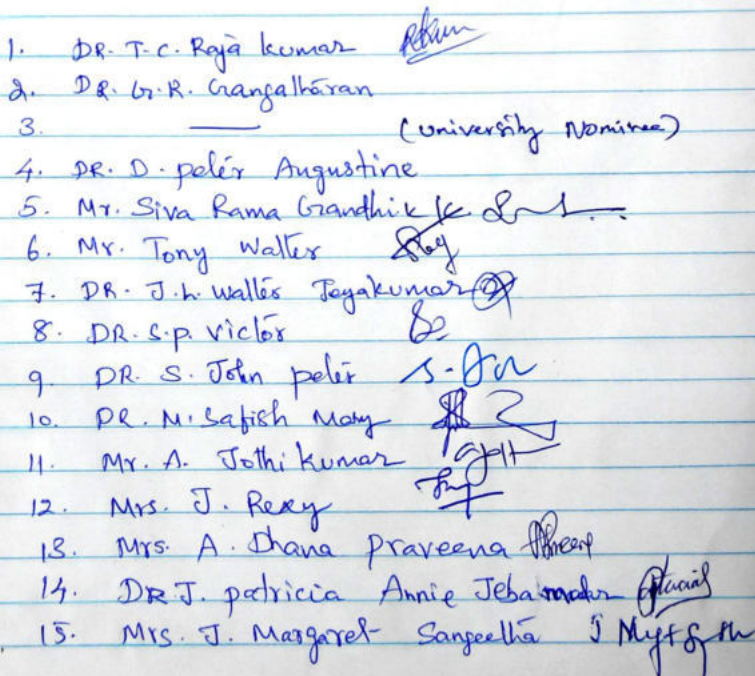 1. DR. T.C. Raja kumar
2. DR. G.R. Gangatharan
3. — (University Nominee)
4. DR. D. peter Augustine
5. Mr. Siva Rama Gandhi k
6. Mr. Tony Walter
7. DR. J.L. walter Jeyakumar
8. DR. S.P. victor
9. DR. S. John peter
10. DR. M. Safish Mary
11. Mr. A. Jothi kumar
12. Mrs. J. Rexy
13. Mrs. A. Dhana praveena
14. DR J. patricia Annie Jebamalar
15. Mrs. J. Margaret Sangeetha